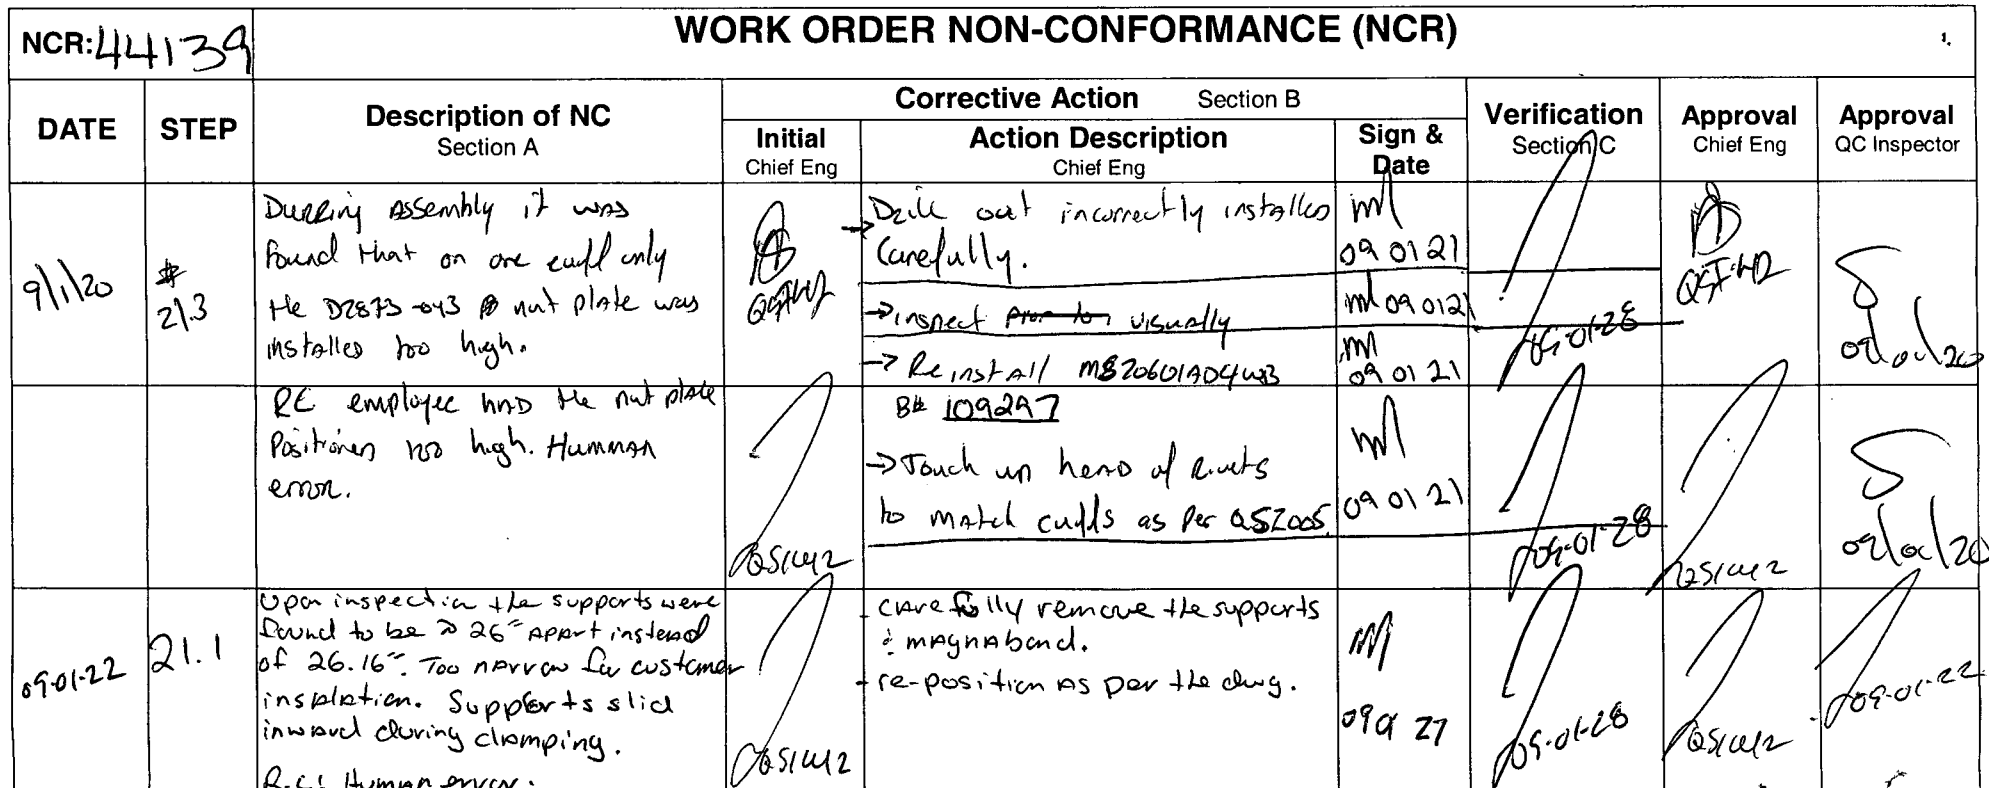 WORK ORDER NON-CONFORMANCE (NCR)
NCR: 44139
DATE
STEP
Description of NC
Section A
Corrective Action Section B
Initial
Chief Eng
Action Description
Chief Eng
Sign &
Date
Verification
Section C
Approval
Chief Eng
Approval
QC Inspector
9/1/20
21.3
Durring Assembly it was
found that on one cuff only
the D2873-043 nut plate was
installed too high.
→ Drill out incorrectly installed
Carefully.
09 01 21
→ inspect prior to visually
09 01 21
→ Reinstall MS20601AD4W3
09 01 21
09-01-28
09/01/20
RC employee had the nut plate
Positioned too high. Humman
error.
B# 109297
→ Touch up head of rivets
to match cuffs as per QSI005
09 01 21
09-01-28
09/01/20
09-01-22
21.1
Upon inspection the supports were
found to be ≈ 26" apart instead
of 26.16". Too narrow for customer
instalation. Supports slid
inward during clamping.
R.C: Human error.
- carefully remove the supports
& magnabond.
- re-position as per the dwg.
09 01 27
09-01-28
09-01-22